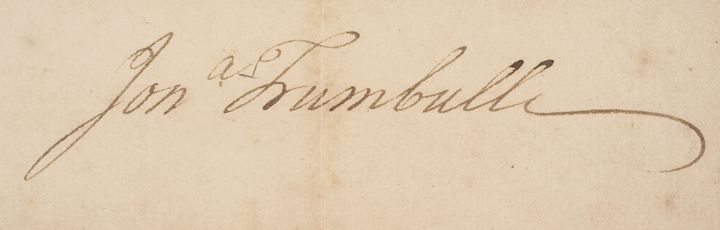 Jonᵃ Trumbull